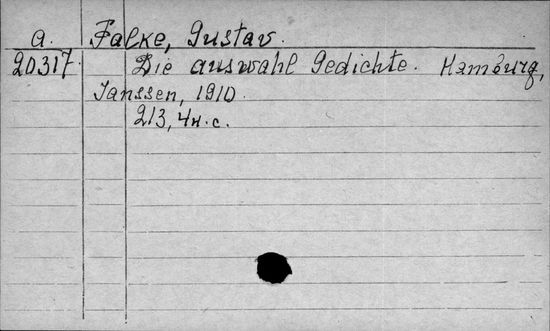 a. Falke, Gustav.
20317. Die auswahl Gedichte. Hamburg,
Janssen, 1910.
213, 4н.с.